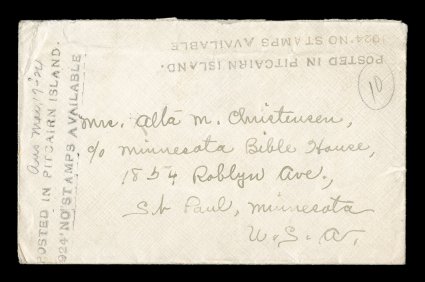 POSTED IN PITCAIRN ISLAND.
1924 NO STAMPS AVAILABLE
10
Ans May 19-24
POSTED IN PITCAIRN ISLAND.
1924 NO STAMPS AVAILABLE
Mrs. Alta M. Christensen,
c/o Minnesota Bible House,
1854 Roblyn Ave.,
St Paul, Minnesota
U.S.A.